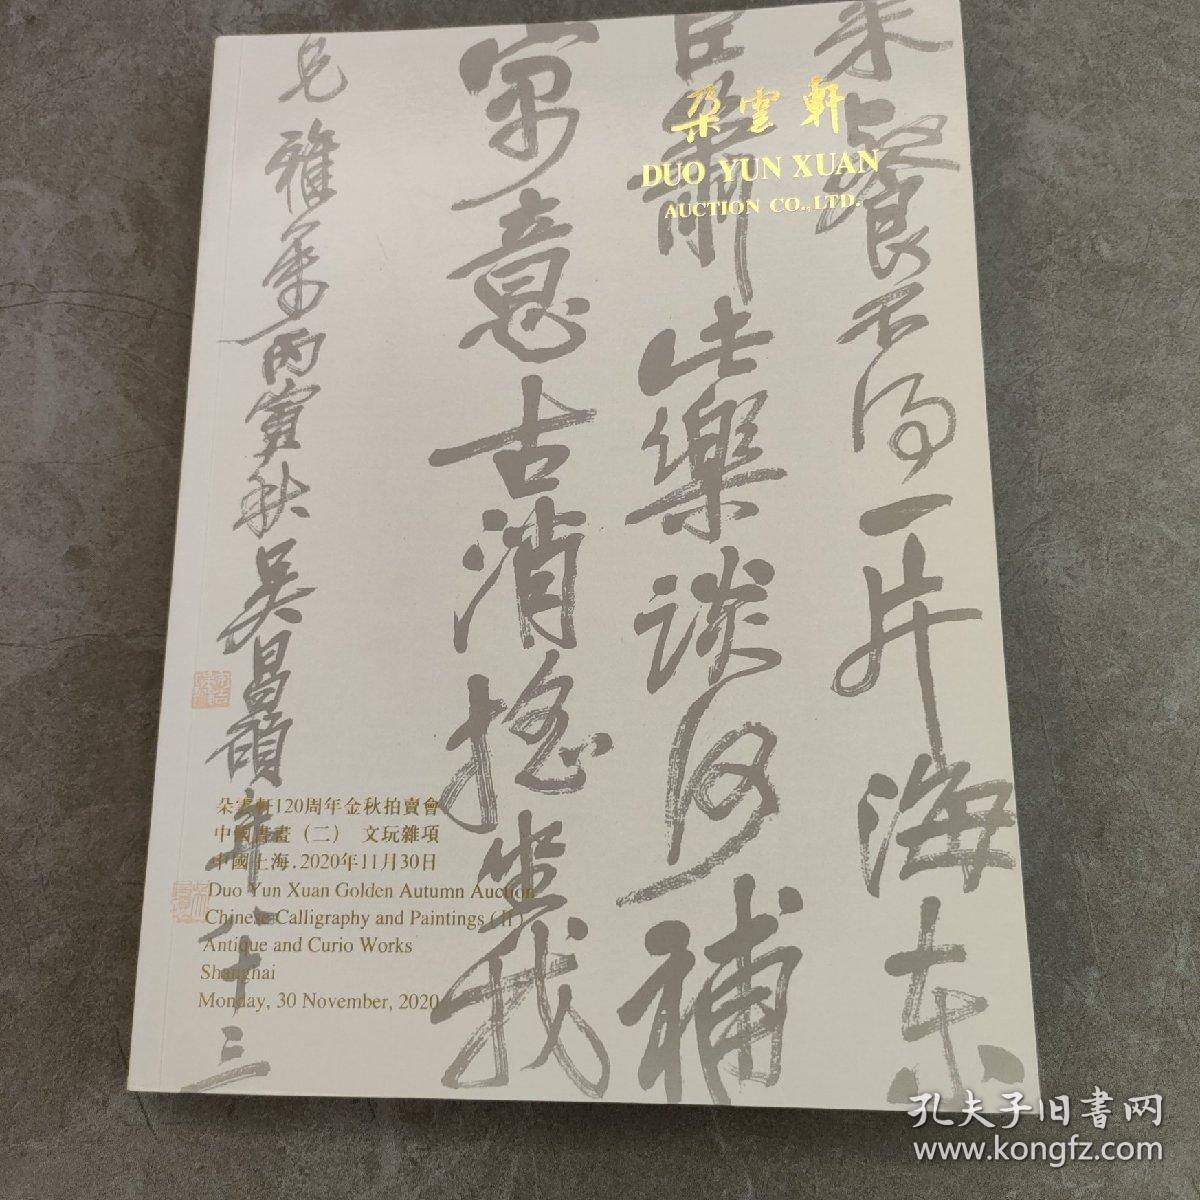 朵雲軒
DUO YUN XUAN
AUCTION CO.,LTD.
餐不得一片海東
此樂談何補
意古消搖坐我
兄雅屬丙寅秋吳昌碩年八十三
朵雲軒120周年金秋拍賣會
中國書畫（二） 文玩雜項
中國上海.2020年11月30日
Duo Yun Xuan Golden Autumn Auction
Chinese Calligraphy and Paintings (II)
Antique and Curio Works
Shanghai
Monday, 30 November, 2020
孔夫子旧书网
www.kongfz.com